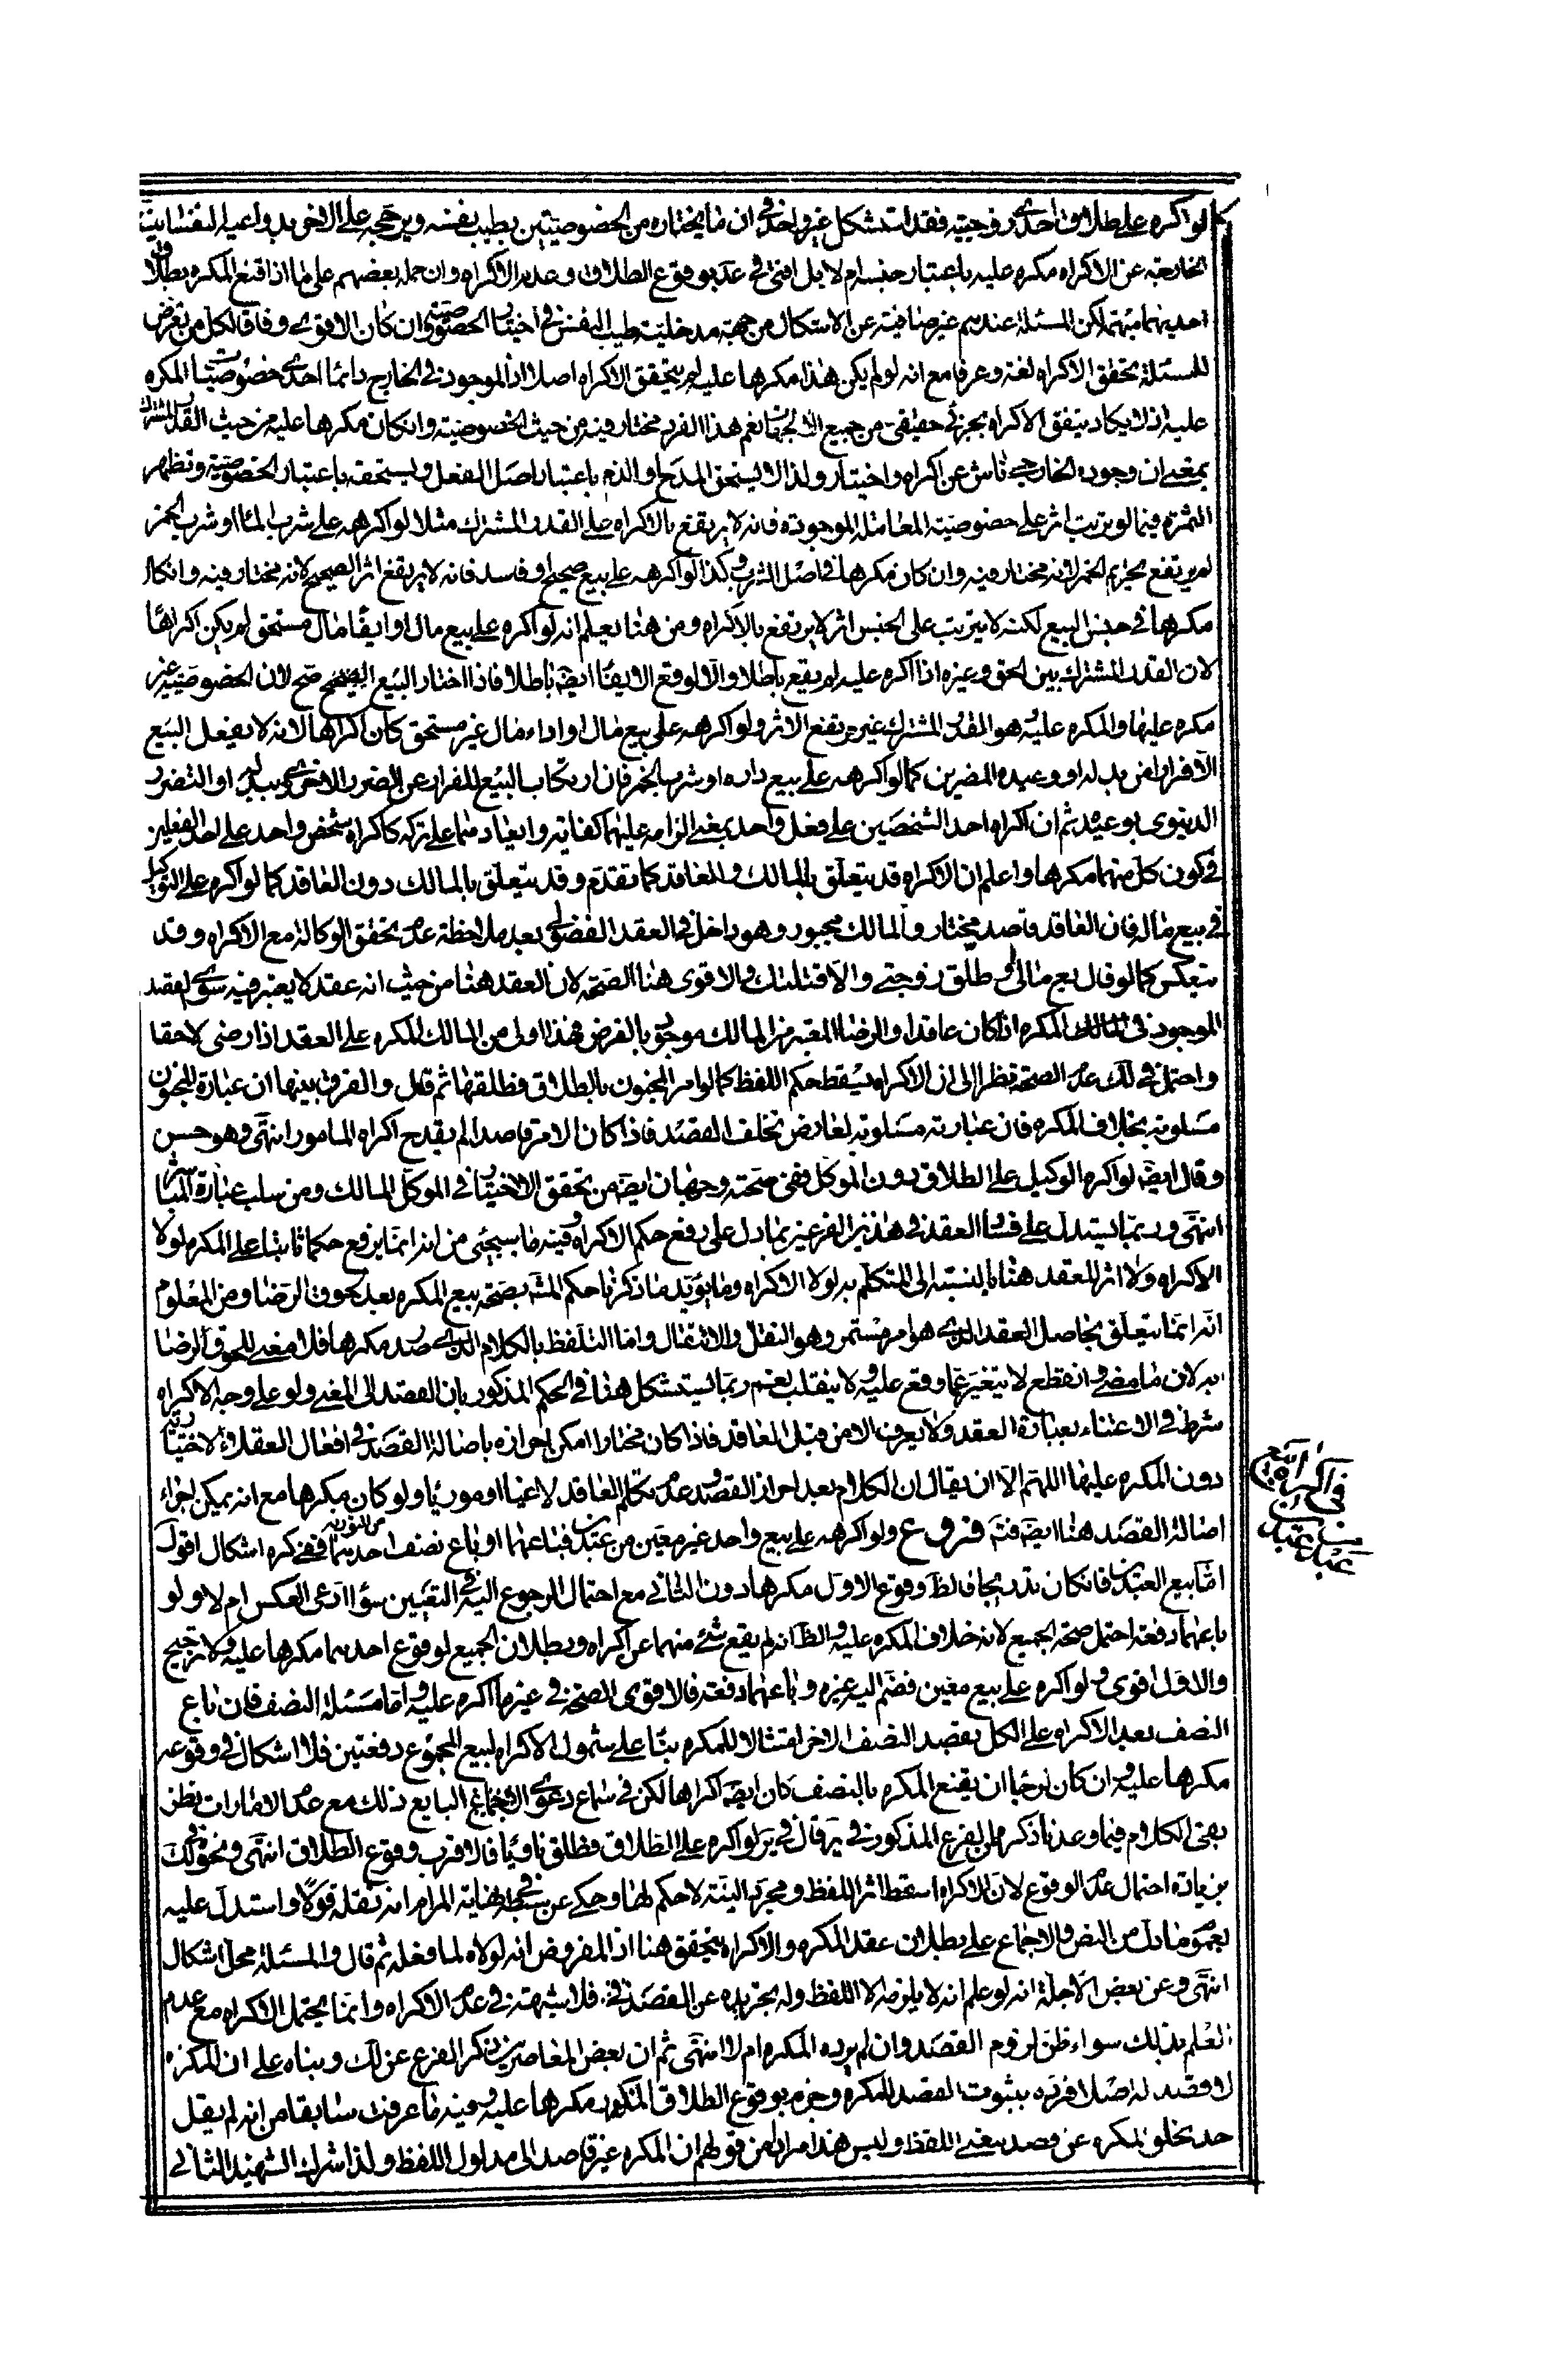 كما لو اكره على طلاق احدى زوجتيه فقد استشكل غير واحد فى ان ما يختاره من الخصوصيتين بطيب نفسه ويرجحه على الاخر بدواعيه النفسانية
الخارجة عن الاكراه مكره عليه باعتبار جنسه ام لا بل افتى فى عد بوقوع الطلاق وعدم الاكراه وان حمله بعضهم على ما اذا قنع المكره بطلاق
احديهما مبهمة لكن المسئلة عندهم غير صافية عن الاشكال من جهة مدخلية طيب النفس فى اختيار الخصوصية وان كان الاقوى وفاقا لكل من تعرض
للمسئلة تحقق الاكراه لغة وعرفا مع انه لو لم يكن هذا مكرها عليه لم يتحقق الاكراه اصلا اذ الموجود فى الخارج دائما احدى خصوصيات المكره
عليه اذ لا يكاد يتفق الاكراه بجزئى حقيقى من جميع الجهات نعم هذا الفرد مختار فيه من حيث الخصوصية وان كان مكرها عليه من حيث القدر المشترك
بمعنى ان وجوده الخارجى ناش عن اكراه واختيار ولذا لا يستحق المدح او الذم باعتبار اصل الفعل ويستحقه باعتبار الخصوصية وتظهر
الثمرة فيما لو ترتب اثر على خصوصية المعاملة الموجودة فانه لا يرتفع بالاكراه على القدر المشترك مثلا لو اكرهه على شرب الماء او شرب الخمر
لم يرتفع تحريم الخمر لانه مختار فيه وان كان مكرها فى اصل الشرب وكذا لو اكرهه على بيع صحيح او فاسد فانه لا يرتفع اثر الصحيح لانه مختار فيه وان كان
مكرها فى جنس البيع لكنه لا يترتب على الجنس اثر لا يرتفع بالاكراه ومن هنا يعلم انه لو اكره على بيع مال او ايفاء مال مستحق لم يكن اكراها
لان القدر المشترك بين الحق وغيره اذا اكره عليه لم يقع باطلا والا لوقع الايفاء ايضا باطلا فاذا اختار البيع صح لان الخصوصية غير
مكره عليها والمكره عليه هو القدر المشترك غير مرتفع الاثر ولو اكرهه على بيع مال او اداء مال غير مستحق كان اكراها لانه لا يفعل البيع
الا فرارا من بدله او وعيده المضرين كما لو اكرهه على بيع داره او شرب الخمر فان ارتكاب البيع للفرار عن الضرر الاخروى ببدله او التضرر
الدنيوى بوعيده ثم ان اكراه احد الشخصين على فعل واحد بمعنى الزامه عليهما كفاية وايعادهما على تركه كاكراه شخص واحد على احد الفعلين
فى كون كل منهما مكرها واعلم ان الاكراه قد يتعلق بالمالك والعاقد كما تقدم وقد يتعلق بالمالك دون العاقد كما لو اكره على التوكيل
فى بيع ماله فان العاقد قاصد مختار والمالك مجبور وهو داخل فى العقد الفضولى بعد ملاحظة عدم تحقق الوكالة مع الاكراه وقد
ينعكس كما لو قال بع مالى او طلق زوجتى والا قتلتك والاقوى هنا الصحة لان العقد هنا من حيث انه عقد لا يعتبر فيه سوى القصد
الموجود فى المكره اذا كان عاقدا والرضا المعتبر من المالك موجود بالفرض فهذا اولى من المالك المكره على العقد اذا رضى لاحقا
واحتمل فى لك عدم الصحة نظرا الى ان الاكراه يسقط حكم اللفظ كما لو امر المجنون بالطلاق فطلقها ثم قال والفرق بينهما ان عبارة المجنون
مسلوبة بخلاف المكره فان عبارته مسلوبة لعارض تخلف القصد فاذا كان الامر قاصدا لم يقدح اكراه المامور انتهى وهو حسن
وقال ايضا لو اكره الوكيل على الطلاق دون الموكل ففى صحته وجهان ايضا من تحقق الاختيار فى الموكل المالك ومن سلب عبارة المباشر
انتهى وربما يستدل على فساد العقد فى هذين الفرعين بما دل على رفع حكم الاكراه وفيه ما سيجئ من انه انما يرفع حكما ثابتا على المكره لولا
الاكراه ولا اثر للعقد هنا بالنسبة الى المتكلم به لولا الاكراه ومما يؤيد ما ذكرنا حكم المش بصحة بيع المكره بعد لحوق الرضا ومن المعلوم
انه انما يتعلق بحاصل العقد الذى هو امر مستمر وهو النقل والانتقال واما التلفظ بالكلام الذى صدر مكرها فلا معنى للحوق الرضا
به لان ما مضى وانقطع لا يتغير عما وقع عليه ولا ينقلب نعم ربما يستشكل هنا فى الحكم المذكور بان القصد الى المعنى ولو على وجه الاكراه
شرط فى الاعتناء بعبارة العقد ولا يعرف الا من قبل العاقد فاذا كان مختارا امكن احرازه باصالة القصد فى افعال العقلاء الاختيارية
دون المكره عليها اللهم الا ان يقال ان الكلام بعد احراز القصد وعدم تكلم العاقد لاغيا او موريا ولو كان مكرها مع انه يمكن اجراء
اصالة القصد هنا ايضا فت فروع ولو اكرهه على بيع واحد غير معين من عبدين فباعهما او باع نصف احدهما ففى كره اشكال اقول
اما بيع العبدين فان كان تدريجا فالظ وقوع الاول مكرها دون الثانى مع احتمال الرجوع اليه فى التعيين سواء ادعى العكس ام لا ولو
باعهما دفعة احتمل صحة الجميع لانه خلاف المكره عليه والظ انه لم يقع شئ منهما عن اكراه وبطلان الجميع لوقوع احدهما مكرها عليه ولا ترجيح
والاول اقوى ولو اكره على بيع معين فضم اليه غيره وباعهما دفعة فالاقوى الصحة فى غير ما اكره عليه واما مسئلة النصف فان باع
النصف بعد الاكراه على الكل بقصد النصف الاخر امتثالا للمكره بناء على شمول الاكراه لبيع المجموع دفعتين فلا اشكال فى وقوعه
مكرها عليه وان كان لرجاء ان يقنع المكره بالنصف كان ايضا اكراها لكن فى سماع دعوى البايع ذلك مع عدم الامارات نظر
بقى الكلام فيما وعدنا ذكره من الفرع المذكور فى ير قال فى ير لو اكره على الطلاق فطلق ناويا فالاقرب وقوع الطلاق انتهى ونحوه فى لك
بزيادة احتمال عدم الوقوع لان الاكراه اسقط اثر اللفظ ومجرد النية لا حكم لها وحكى عن سبطه فى نهاية المرام انه نقله قولا واستدل عليه
بعموم ما دل من النص والاجماع على بطلان عقد المكره والاكراه يتحقق هنا اذ المفروض انه لولاه لما فعله ثم قال والمسئلة محل اشكال
انتهى وعن بعض الاجلة انه لو علم انه لا يلزمه الا اللفظ وله تجريده عن القصد فلا شبهة فى عدم الاكراه وانما يحتمل الاكراه مع عدم
العلم بذلك سواء ظن لزوم القصد وان لم يرده المكره ام لا انتهى ثم ان بعض المعاصرين ذكر الفرع عن لك وبناه على ان المكره
لا قصد له اصلا فرده بثبوت القصد للمكره وجزم بوقوع الطلاق المذكور مكرها عليه وفيه ما عرفت سابقا من انه لم يقل
احد بخلو المكره عن قصد معنى اللفظ وليس هذا مرادا من قولهم ان المكره غير قاصد الى مدلول اللفظ ولذا شرك الشهيد الثانى